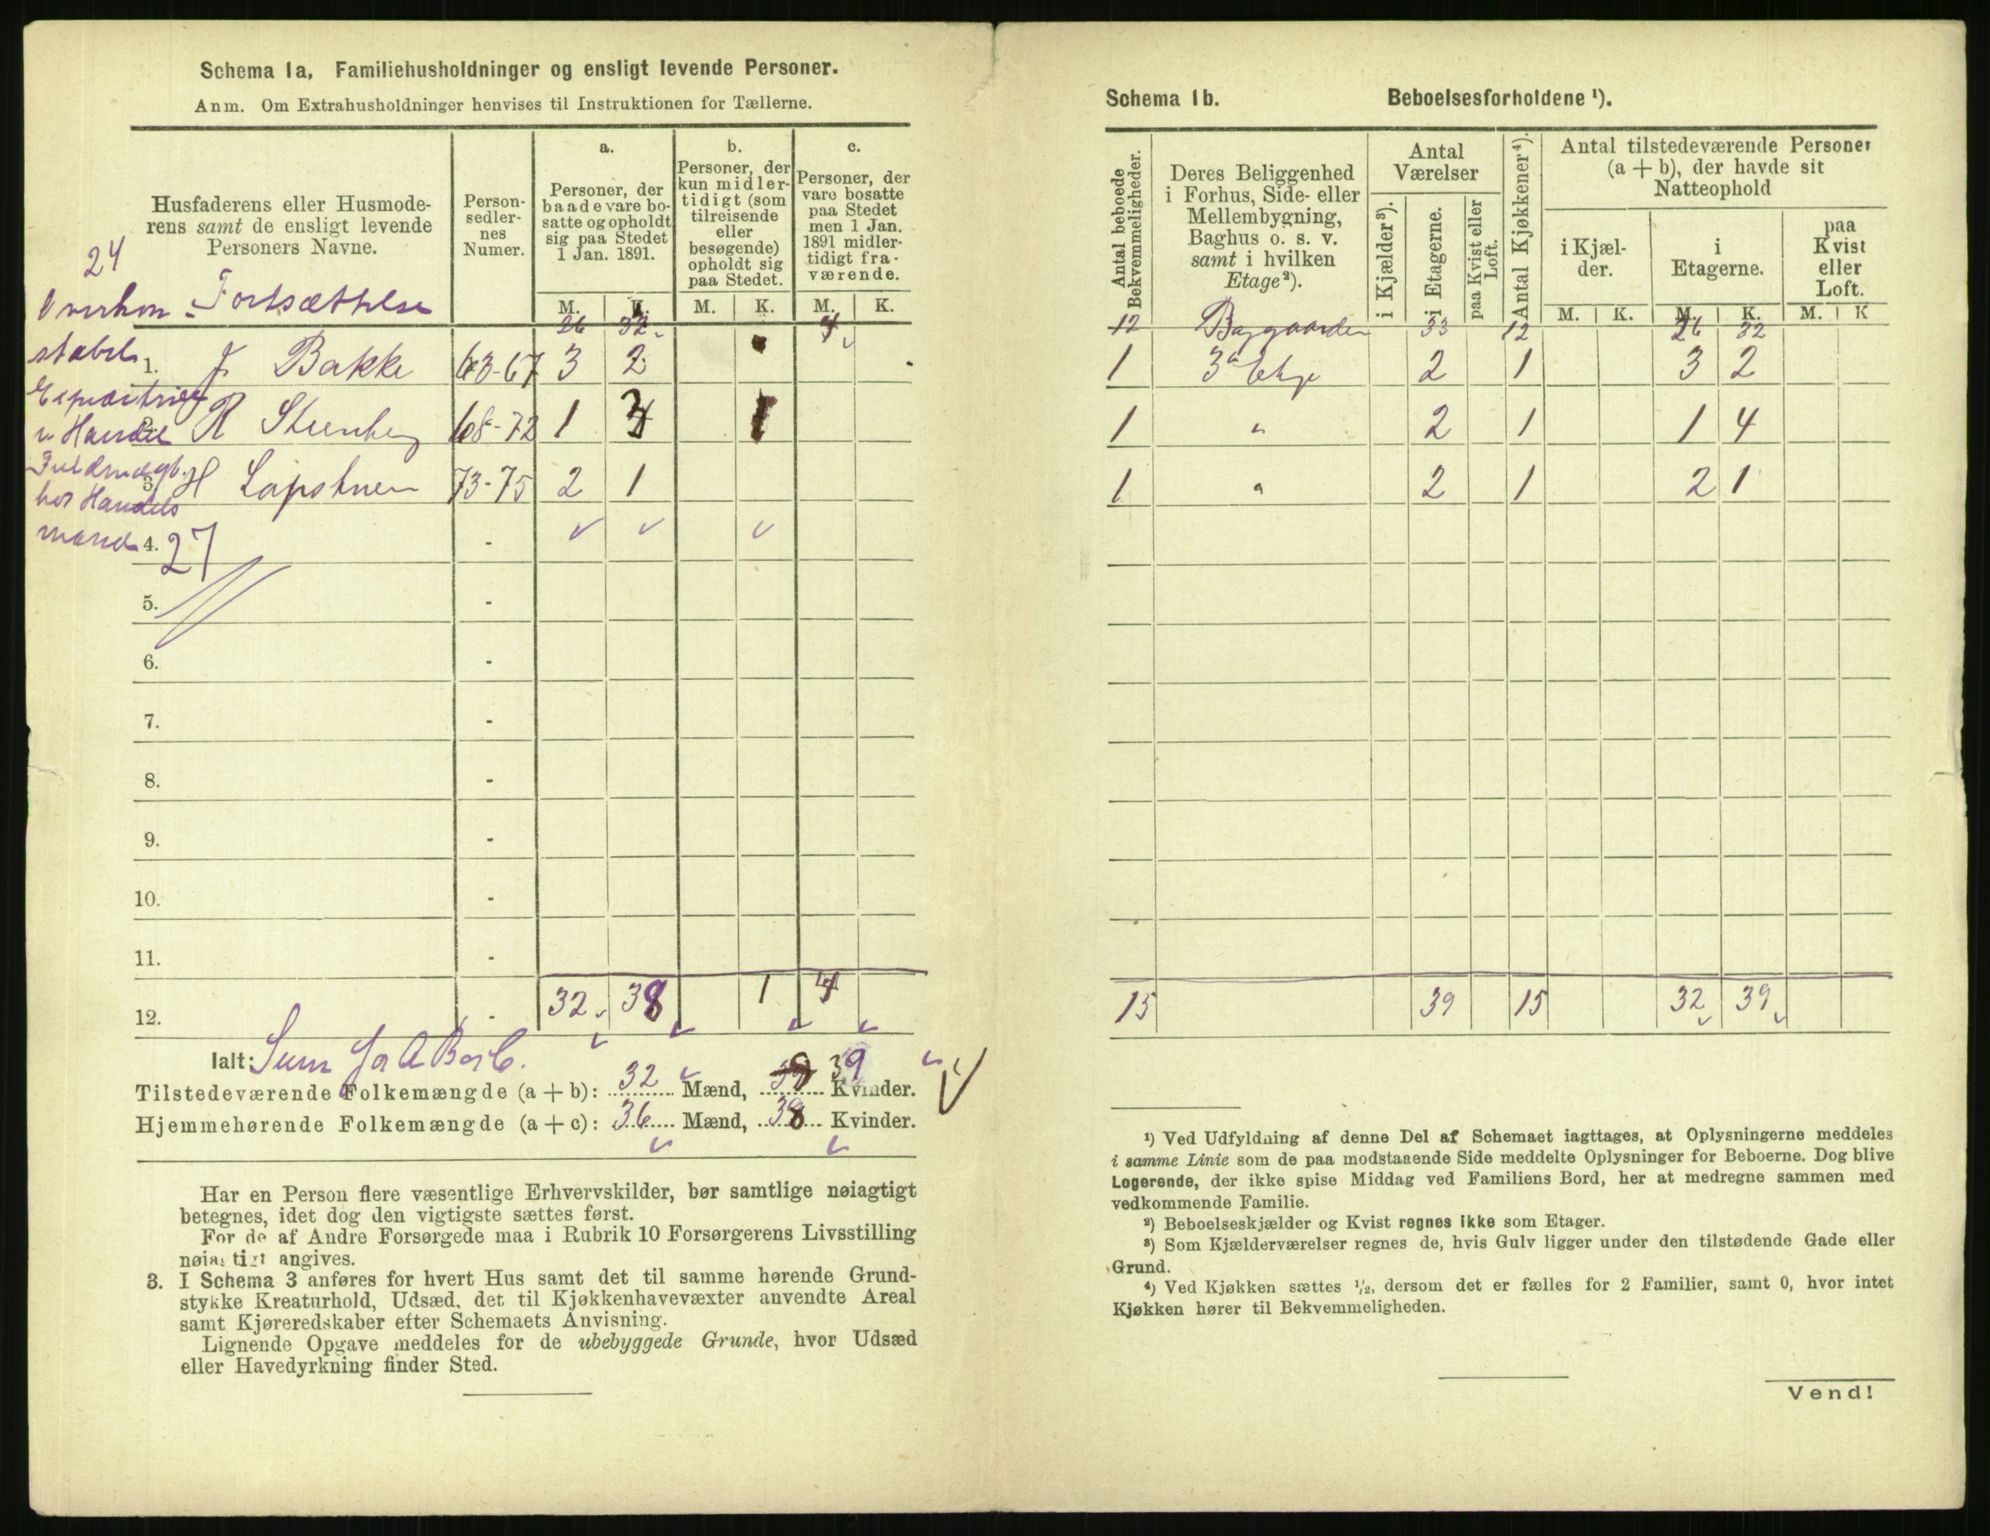 Schema 1a, Familiehusholdninger og ensligt levende Personer.
Anm. Om Extrahusholdninger henvises til Instruktionen for Tællerne.
Husfaderens eller Husmode-
rens samt de ensligt levende
Personers Navne.
Person-
sedler-
nes
Numer.
a.
Personer, der
baade vare bo-
satte og opholdt
sig paa Stedet
1 Jan. 1891.
b.
Personer, der
kun midler-
tidigt (som
tilreisende
eller
besøgende)
opholdt sig
paa Stedet.
c.
Personer, der
vare bosatte
paa Stedet
men 1 Jan.
1891 midler-
tidigt fra-
værende.
M. K. M. K. M. K.
24
Fortsættelse
26 32 4
1. J. Bakke 63-67 3 2
2. R Steenberg 68-72 1 3 1
3. H Lapstuen 73-75 2 1
hos Handels
mand
4. 27 -
5. -
6. -
7. -
8. -
9. -
10. -
11. -
12. - 32 38 1 4
Ialt: Sum for A B og C.
Tilstedeværende Folkemængde (a + b): 32 Mænd, 39 Kvinder.
Hjemmehørende Folkemængde (a + c): 36 Mænd, 38 Kvinder.
Har en Person flere væsentlige Erhvervskilder, bør samtlige nøiagtigt
betegnes, idet dog den vigtigste sættes først.
For de af Andre Forsørgede maa i Rubrik 10 Forsørgerens Livsstilling
nøiagtigt angives.
3. I Schema 3 anføres for hvert Hus samt det til samme hørende Grund-
stykke Kreaturhold, Udsæd, det til Kjøkkenhavevæxter anvendte Areal
samt Kjøreredskaber efter Schemaets Anvisning.
Lignende Opgave meddeles for de ubebyggede Grunde, hvor Udsæd
eller Havedyrkning finder Sted.
Schema 1b. Beboelsesforholdene ¹).
Antal beboede
Bekvemmeligheder.
Deres Beliggenhed
i Forhus, Side- eller
Mellembygning,
Baghus o. s. v.
samt i hvilken
Etage²).
Antal
Værelser
i Kjælder³).
i Etagerne.
paa Kvist eller
Loft.
Antal Kjøkkener⁴).
Antal tilstedeværende Personer
(a + b), der havde sit
Natteophold
i Kjæl-
der.
i
Etagerne.
paa
Kvist
eller
Loft.
M. K. M. K. M. K
12 Baggaarden 33 12 26 32
1 3die Etage 2 1 3 2
1 " 2 1 1 4
1 " 2 1 2 1
15 39 15 32 39
¹) Ved Udfyldning af denne Del af Schemaet iagttages, at Oplysningerne meddeles
i samme Linie som de paa modstaaende Side meddelte Oplysninger for Beboerne. Dog blive
Logerende, der ikke spise Middag ved Familiens Bord, her at medregne sammen med
vedkommende Familie.
²) Beboelseskjælder og Kvist regnes ikke som Etager.
³) Som Kjælderværelser regnes de, hvis Gulv ligger under den tilstødende Gade eller
Grund.
⁴) Ved Kjøkken sættes ½, dersom det er fælles for 2 Familier, samt 0, hvor intet
Kjøkken hører til Bekvemmeligheden.
Vend!